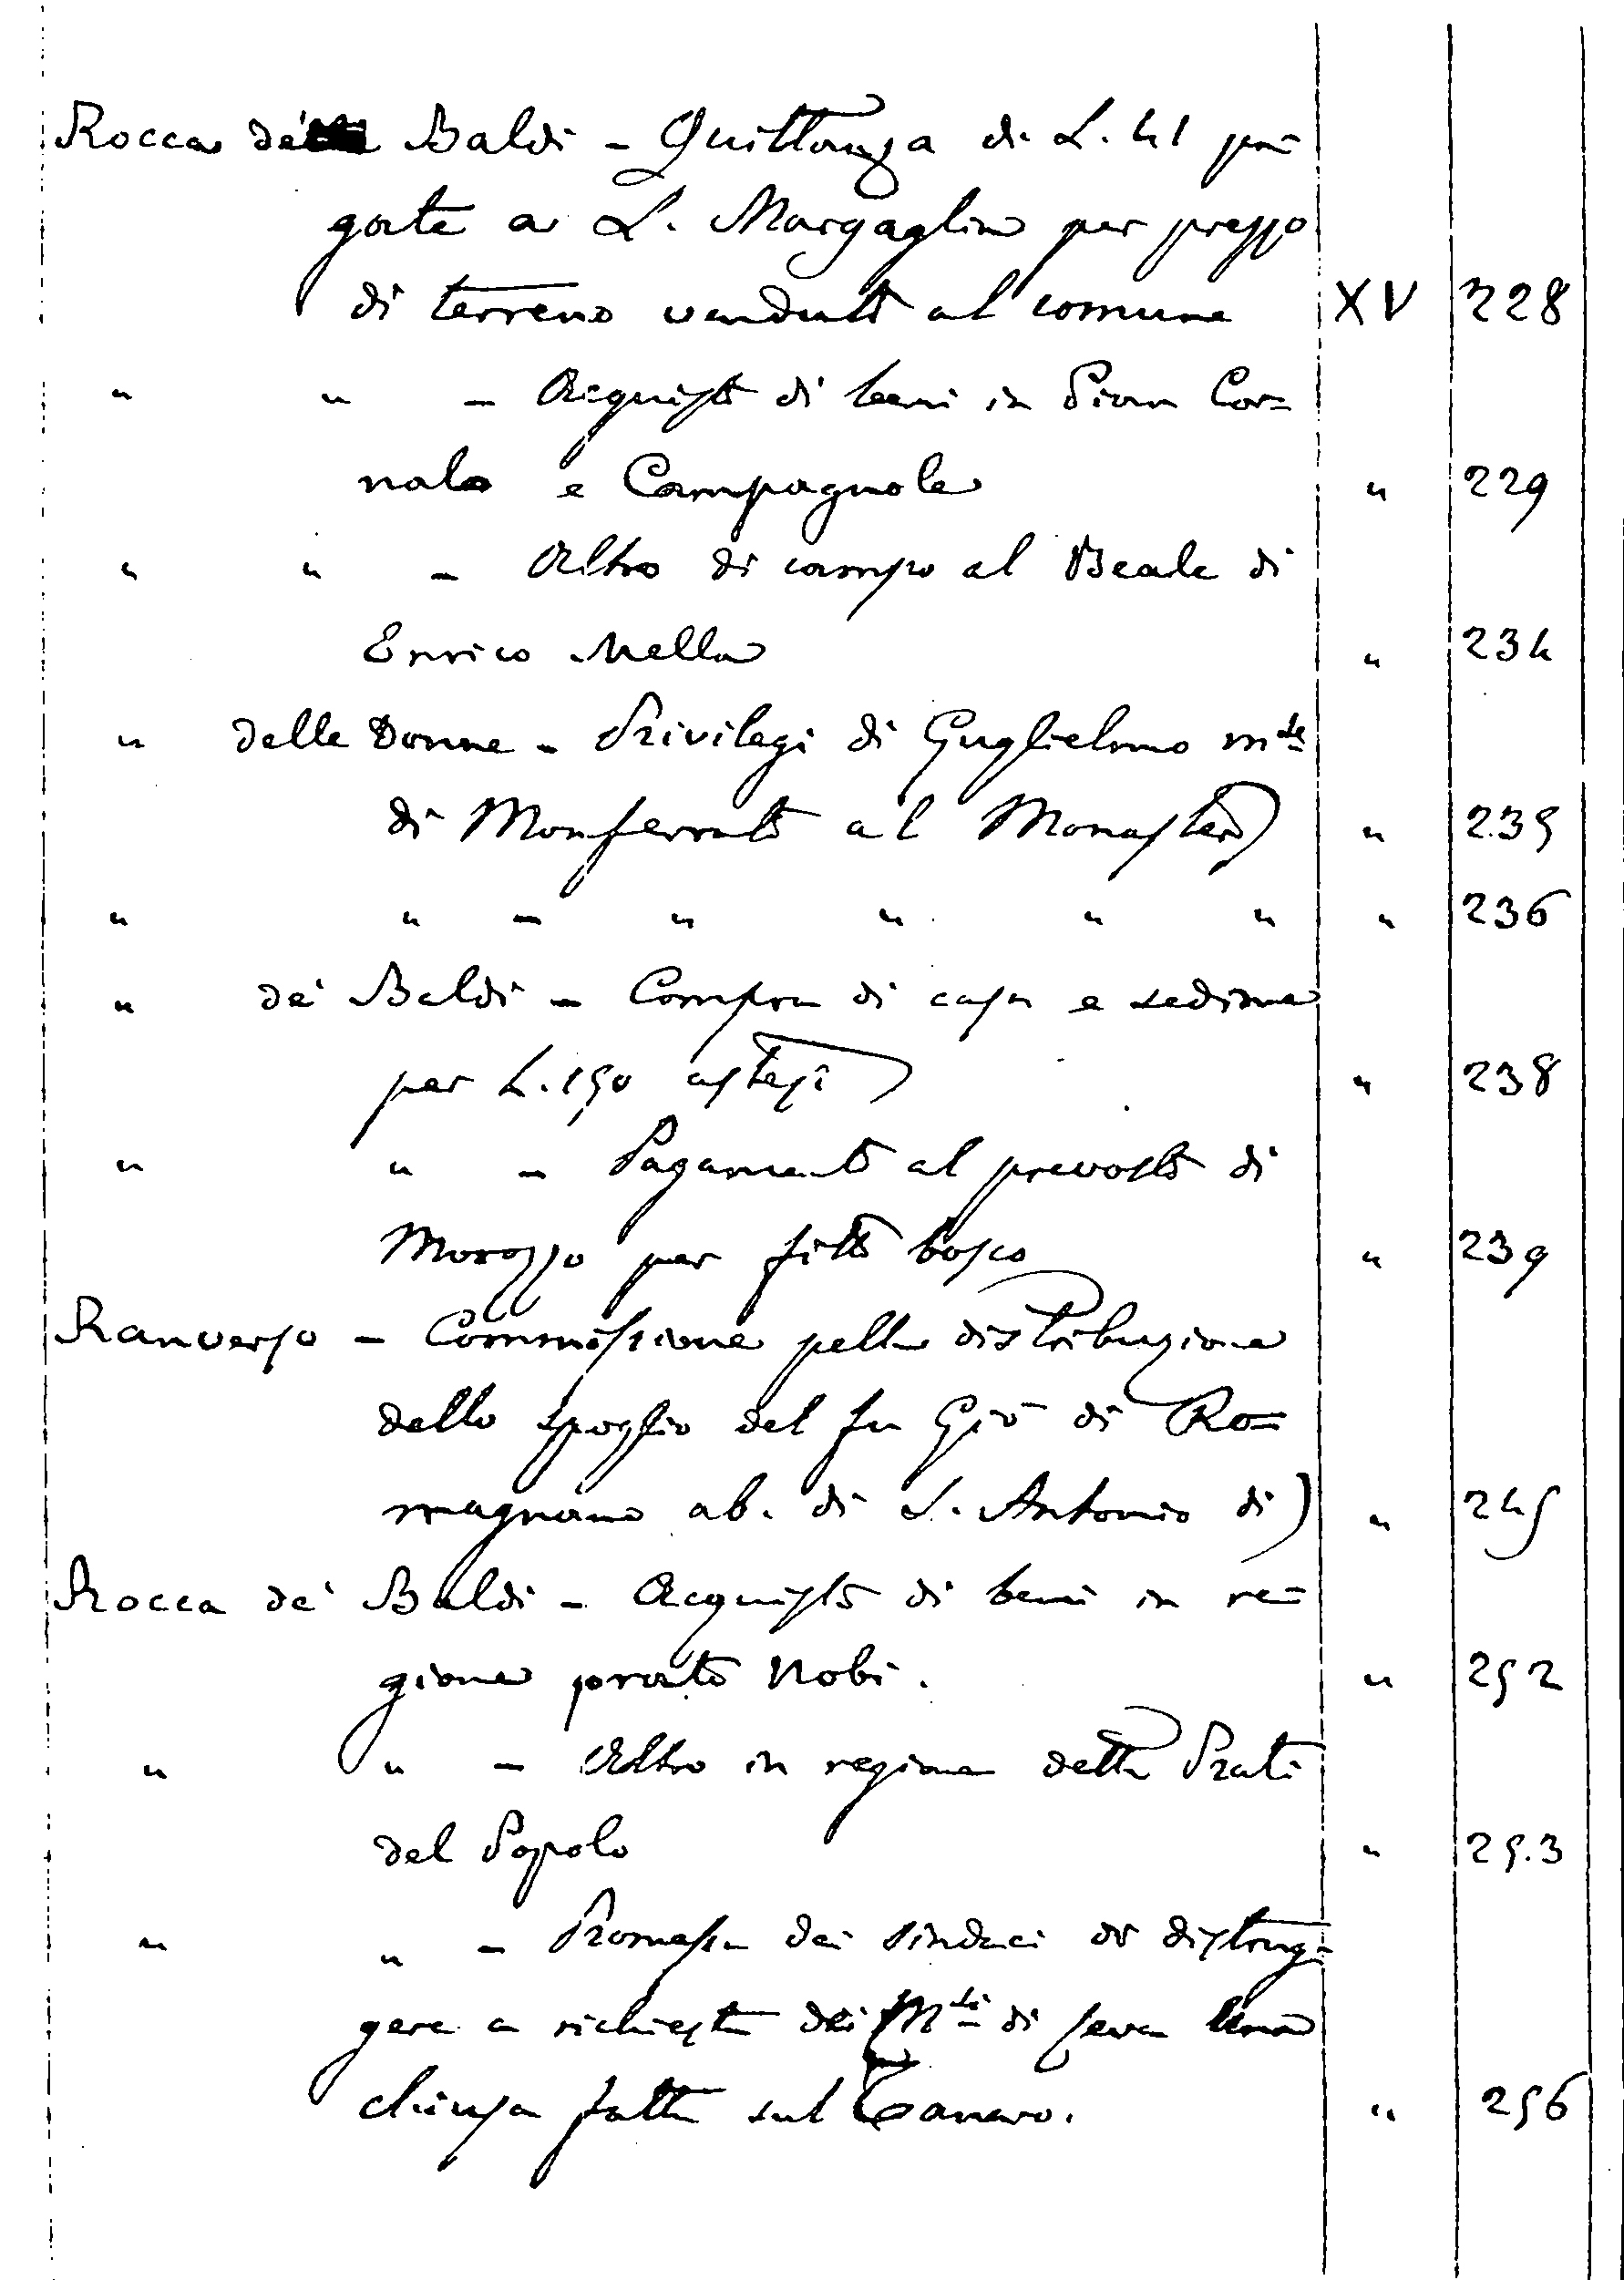 Rocca de' Baldi - Quittanza di L. 41 pa=
gate a L. Margaglino per prezzo
di terreno venduto al comune XV 228
" " - Acquisto di beni in Pian Cor=
nale e Campagnole " 229
" " - Altro di campo al Beale di
Enrico Mella " 234
" delle Donne - Privilegi di Guglielmo m.se
di Monferrato al Monastero) " 235
" " - " " " " " 236
" de' Baldi - Compra di casa e sedime
per L. 150 astesi " 238
" " - Pagamento al prevosto di
Morozzo per fitto bosco " 239
Ranverso - Commissione pella distribuzione
dello spoglio del fu Gio di Ro=
magnano ab. di S. Antonio di) " 245
Rocca de' Baldi - Acquisto di beni in re=
gione prato Nobi. " 252
" " - Altro in regione detta Prati
del Popolo " 253
" " - Promessa dei sindaci di distrug=
gere a richiesta dei M.si di Ceva una
chiusa fatta sul Tanaro. " 256